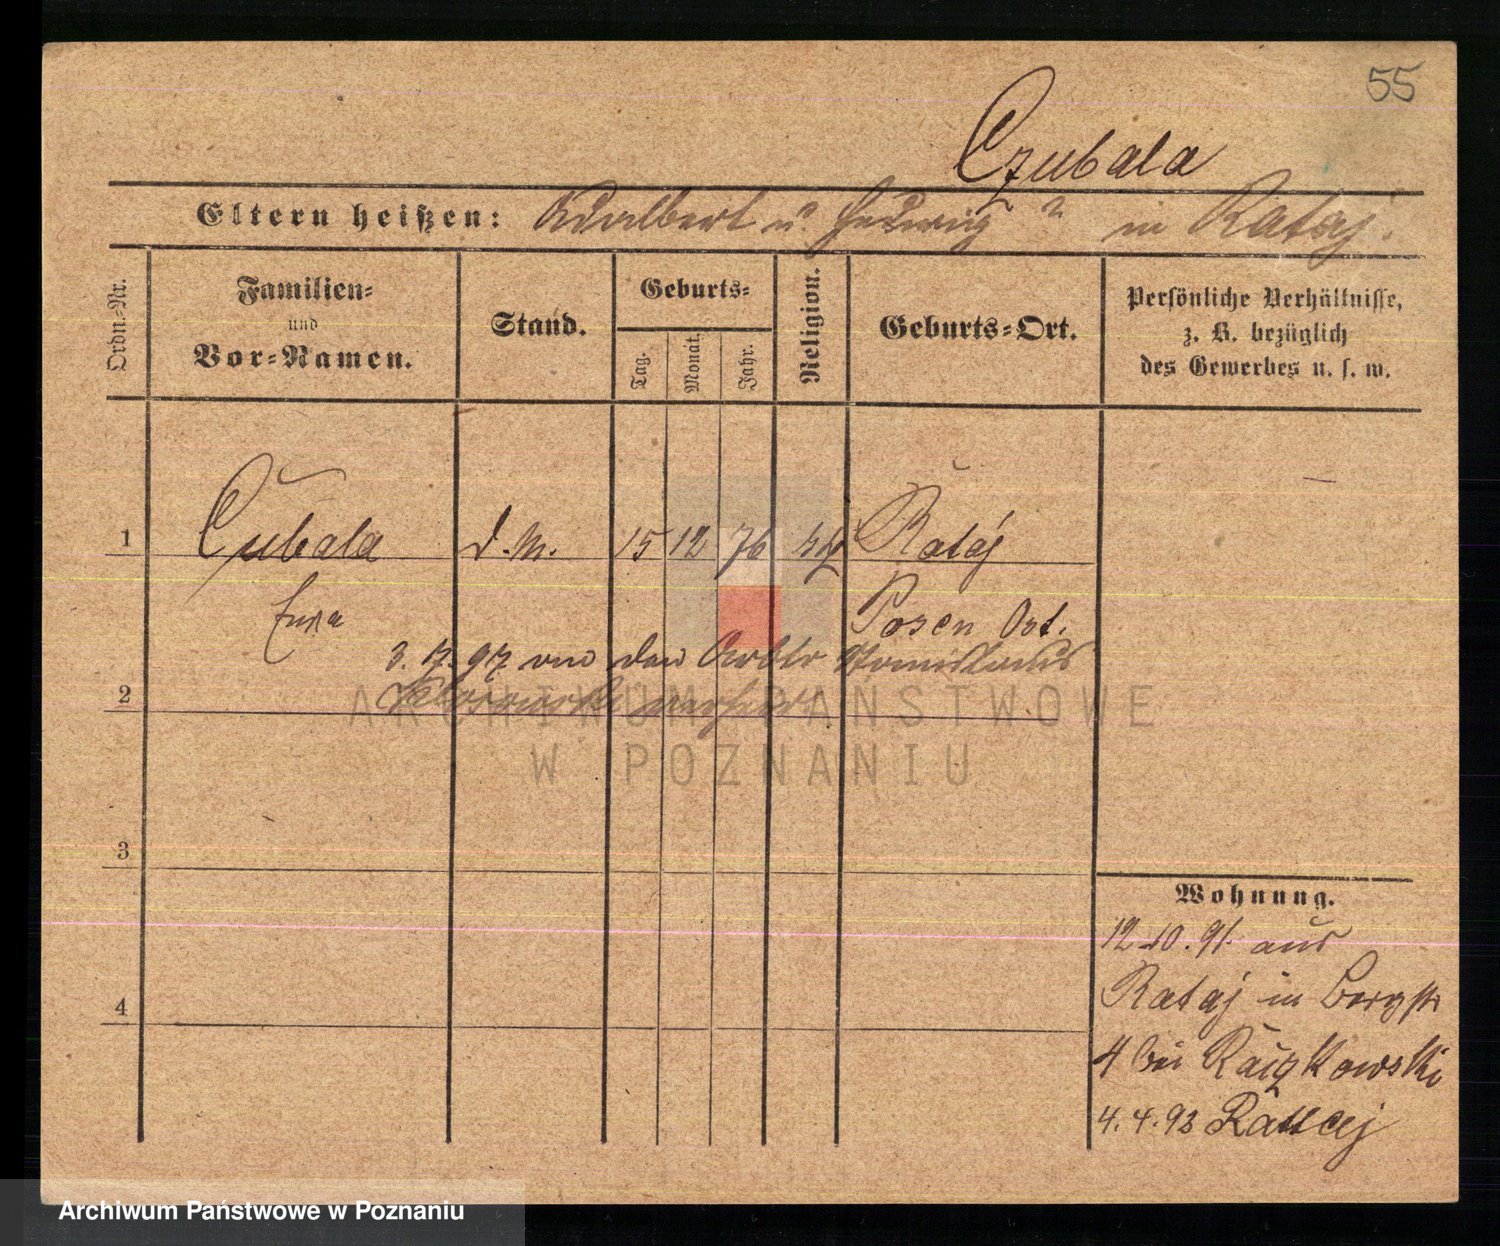 55
Czubala
Eltern heißen: Adalbert u. Hedwig in Rataj.
Ordn.-Nr.
Familien-
und
Vor-Namen.
Stand.
Geburts-
Tag.
Monat.
Jahr.
Religion.
Geburts-Ort.
Persönliche Verhältnisse,
z. B. bezüglich
des Gewerbes u. s. w.
1 Czubala d. M. 15 12 76 Rataj
Posen Ost.
3. 7. 97 den Stanislaus
2
ARCHIWUM PAŃSTWOWE
W POZNANIU
3
Wohnung.
12-10.91. aus
Rataj in Bergstr
4
4 bei Raczkowski
4.4.92 Rattaj
Archiwum Państwowe w Poznaniu